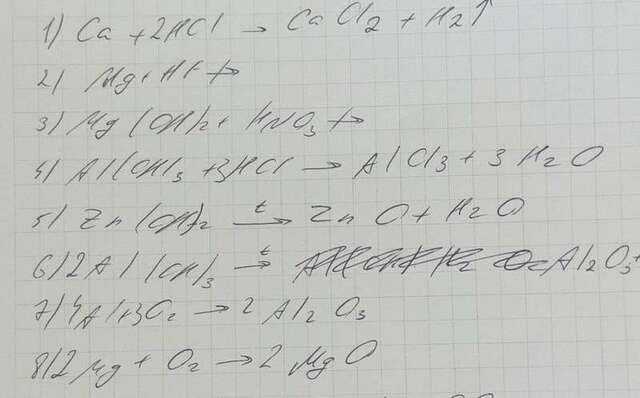 1) Ca + 2HCl → CaCl2 + H2↑
2) Mg + HF ↛
3) Mg(OH)2 + HNO3 ↛
4) Al(OH)3 + 3HCl → AlCl3 + 3H2O
5) Zn(OH)2 t→ ZnO + H2O
6) 2Al(OH)3 t→ Al2O3 +
7) 4Al + 3O2 → 2Al2O3
8) 2Mg + O2 → 2MgO